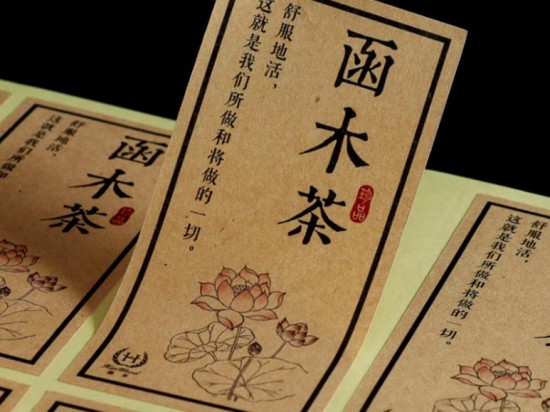 函木茶
珍品
舒服地活，
这就是我们所做和将做的一切。
H
函木茶
舒服地活，
这就是我们所做
舒服地活，
这就是我们所做和将做的一切。